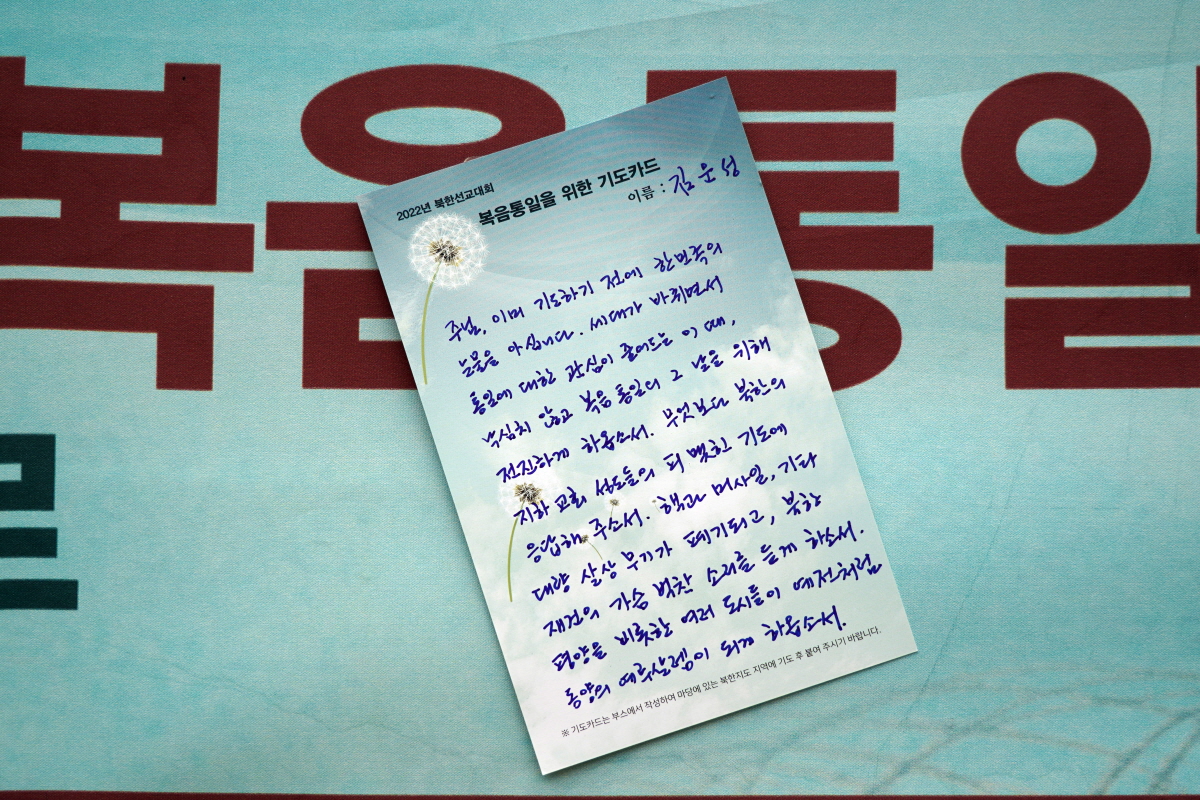 복음통일
2022년 북한선교대회
복음통일을 위한 기도카드
이름 : 김운성
주님, 이미 기도하기 전에 한민족의
눈물을 아십니다. 세대가 바뀌면서
통일에 대한 관심이 줄어드는 이 때,
낙심치 않고 복음 통일의 그 날을 위해
전진하게 하옵소서. 무엇보다 북한의
지하 교회 성도들의 피 맺힌 기도에
응답해 주소서. 핵과 미사일, 기타
대량 살상 무기가 폐기되고, 북한
재건의 가슴 벅찬 소리를 듣게 하소서.
평양을 비롯한 여러 도시들이 예전처럼
동양의 예루살렘이 되게 하옵소서.
※ 기도카드는 부스에서 작성하여 마당에 있는 북한지도 지역에 기도 후 붙여 주시기 바랍니다.